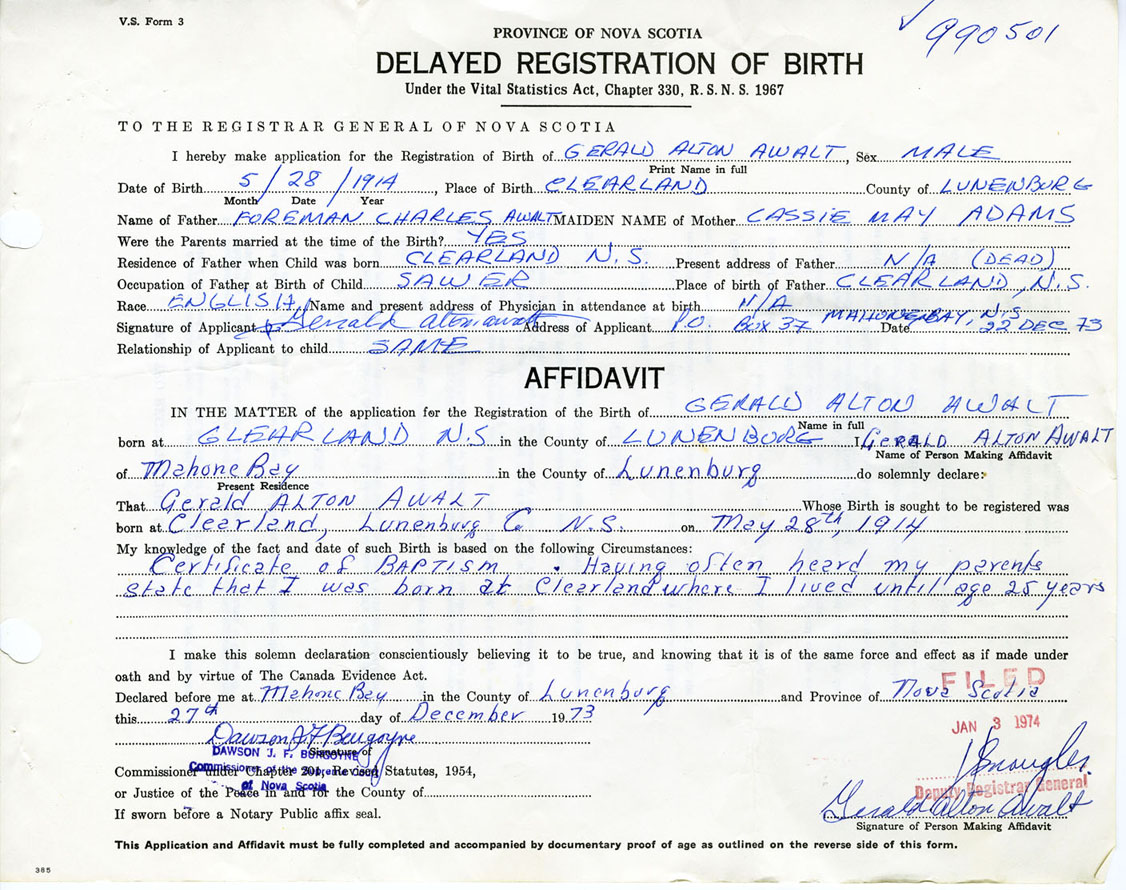 V.S. Form 3
√ 990501
PROVINCE OF NOVA SCOTIA
DELAYED REGISTRATION OF BIRTH
Under the Vital Statistics Act, Chapter 330, R.S.N.S. 1967
TO THE REGISTRAR GENERAL OF NOVA SCOTIA
I hereby make application for the Registration of Birth of GERALD ALTON AWALT, Sex MALE
Print Name in full
Date of Birth 5 / 28 / 1914, Place of Birth CLEARLAND County of LUNENBURG
Month Date Year
Name of Father FOREMAN CHARLES AWALT MAIDEN NAME of Mother CASSIE MAY ADAMS
Were the Parents married at the time of the Birth? YES
Residence of Father when Child was born CLEARLAND N.S. Present address of Father N/A (DEAD)
Occupation of Father at Birth of Child SAWER Place of birth of Father CLEARLAND, N.S.
Race ENGLISH Name and present address of Physician in attendance at birth N/A
Signature of Applicant Gerald Alton Awalt Address of Applicant P.O. BOX 37 MAHONE BAY, N.S Date 22 DEC 73
Relationship of Applicant to child SAME
AFFIDAVIT
IN THE MATTER of the application for the Registration of the Birth of GERALD ALTON AWALT
Name in full
born at CLEARLAND N.S in the County of LUNENBURG I, GERALD ALTON AWALT
Name of Person Making Affidavit
of Mahone Bay in the County of Lunenburg do solemnly declare:
Present Residence
That Gerald ALTON AWALT Whose Birth is sought to be registered was
born at Clearland, Lunenburg Co N.S. on May 28th, 1914
My knowledge of the fact and date of such Birth is based on the following Circumstances:
Certificate of BAPTISM . Having often heard my parents
state that I was born at Clearland where I lived until age 25 years
I make this solemn declaration conscientiously believing it to be true, and knowing that it is of the same force and effect as if made under
oath and by virtue of The Canada Evidence Act.
FILED
Declared before me at Mahone Bay in the County of Lunenburg and Province of Nova Scotia
this 27th day of December 1973
JAN 3 1974
Dawson J F Burgoyne
Signature of
DAWSON J. F. BURGOYNE
Commissioner under Chapter 201, Revised Statutes, 1954,
Commissioner of the Supreme Court
of Nova Scotia
or Justice of the Peace in and for the County of
Deputy Registrar General
If sworn before a Notary Public affix seal.
Gerald Alton Awalt
Signature of Person Making Affidavit
This Application and Affidavit must be fully completed and accompanied by documentary proof of age as outlined on the reverse side of this form.
385